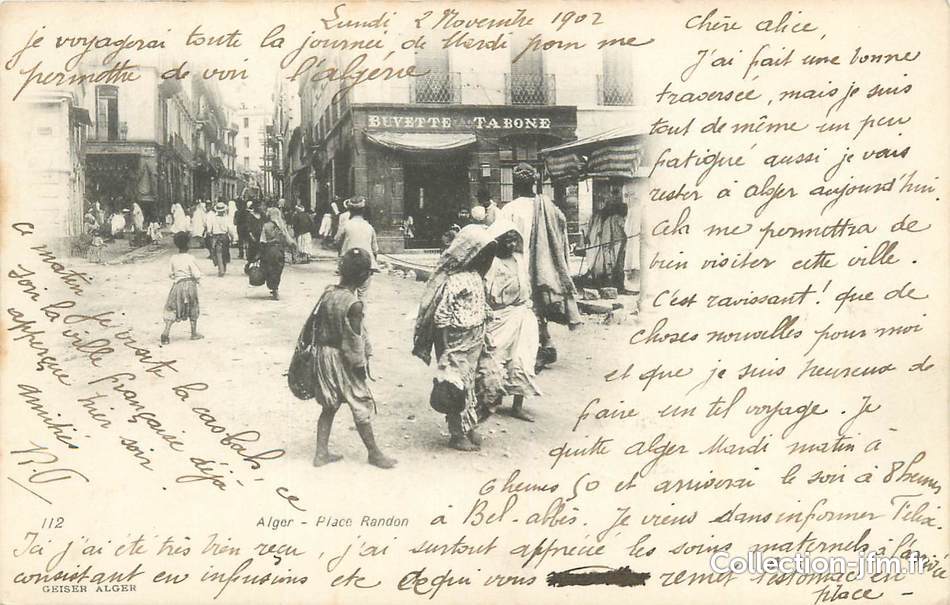 Lundi 2 Novembre 1902
Chère Alice,
J'ai fait une bonne
traversée, mais je suis
tout de même un peu
fatigué aussi je vais
rester à Alger aujourd'hui
Cela me permettra de
bien visiter cette ville.
C'est ravissant! que de
choses nouvelles pour moi
et que je suis heureux de
faire un tel voyage. Je
quitte Alger Mardi matin à
6 heures 50 et arriverai le soir à 8 heures
à Bel-abbès. Je viens d'en informer Félix.
Ici j'ai été très bien reçu, j'ai surtout apprécié les soins maternels à l'arrivée
consistant en infusions etc ce qui vous remet l'estomac en
place -
je voyagerai toute la journée de Mardi pour me
permettre de voir l'algérie
ce matin je visite la casbah, ce
soir la ville française déjà
aperçue hier soir
amitiés
BUVETTE TABONE
112
Alger - Place Randon
GEISER ALGER
Collection-jfm.fr